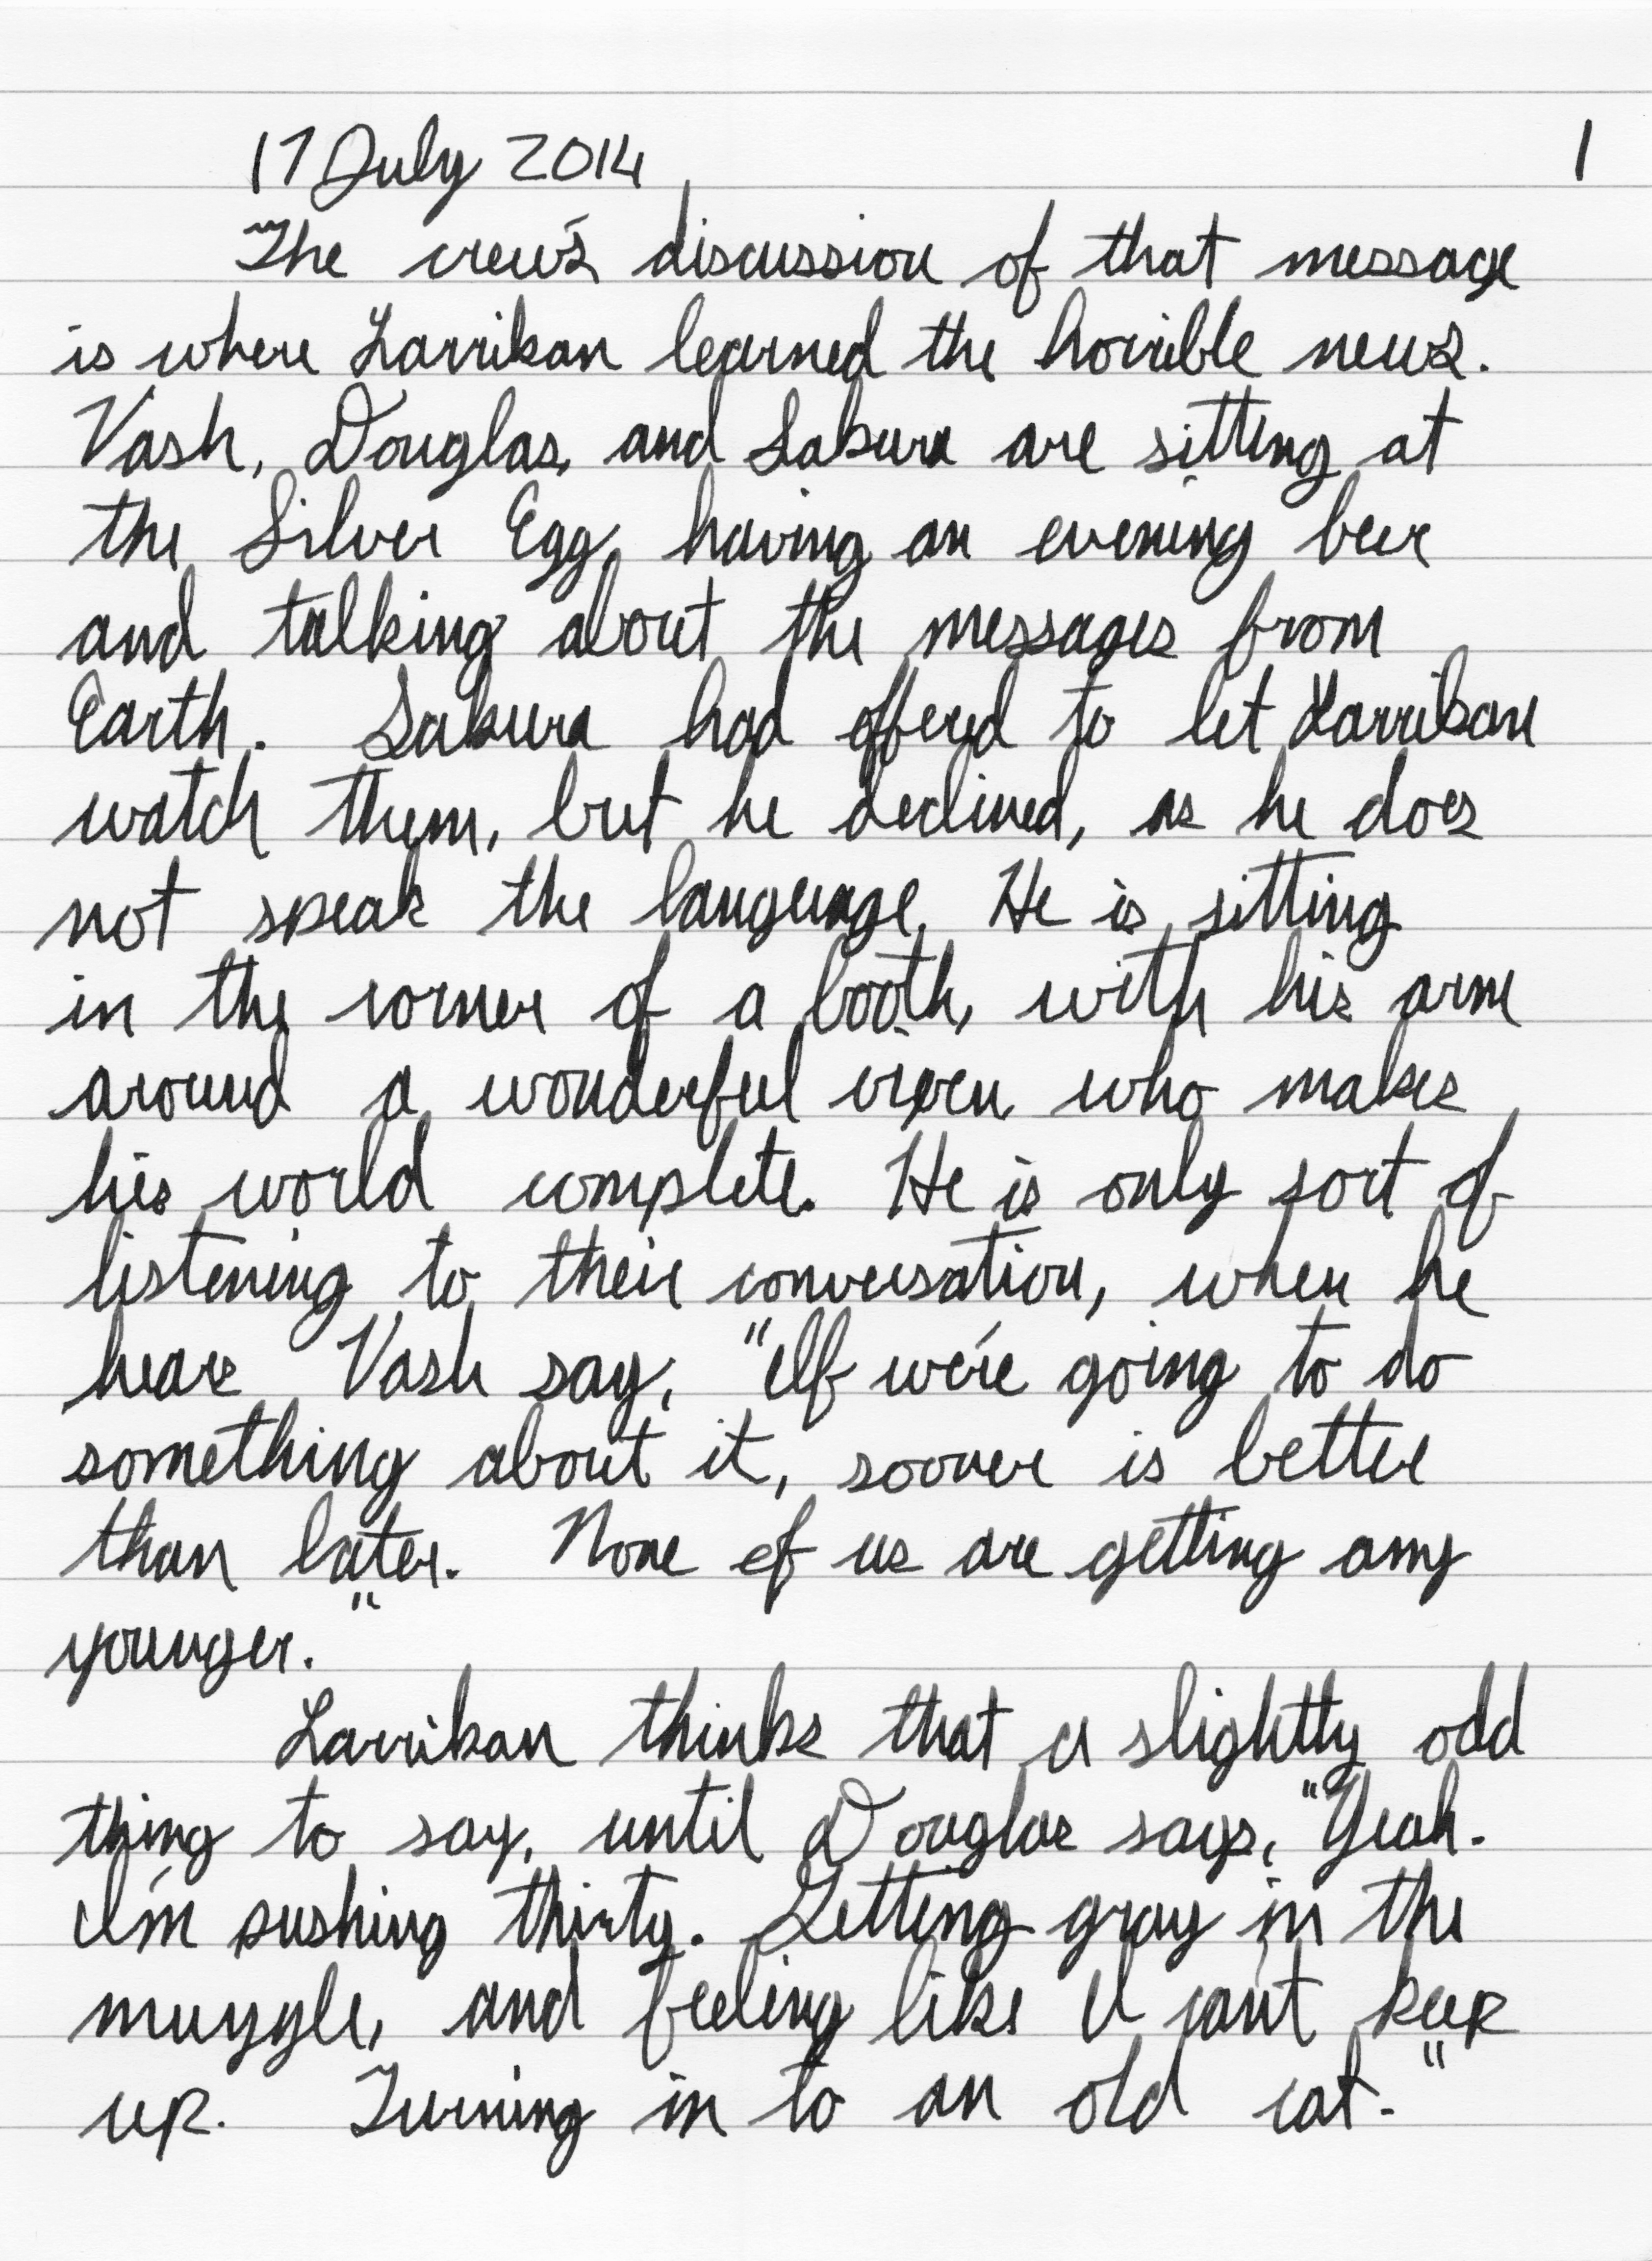 17 July 2014 1
The crew's discussion of that message
is where Larrikan learned the horrible news.
Vash, Douglas, and Sakura are sitting at
the Silver Egg, having an evening beer
and talking about the messages from
Earth. Sakura had offered to let Larrikan
watch them, but he declined, as he does
not speak the language. He is sitting
in the corner of a booth, with his arm
around a wonderful vixen who makes
his world complete. He is only sort of
listening to their conversation, when he
hears Vash say, "If we're going to do
something about it, sooner is better
than later. None of us are getting any
younger."
Larrikan thinks that a slightly odd
thing to say, until Douglas says, "Yeah.
I'm pushing thirty. Getting gray in the
muzzle, and feeling like I can't keep
up. Turning in to an old cat."